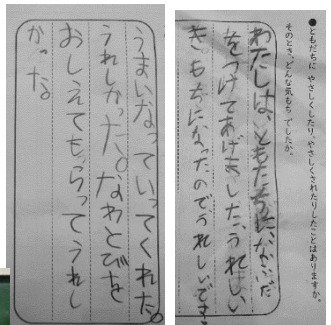 ●ともだちに やさしくしたり、やさしくされたりしたことはありますか。
そのとき、どんな気もち でしたか。
わたしは、ともだちに
をつけてあげました、うれしい
き。もちになったのでうれしいです。
うまいなっていってくれた。
うれしかった。なわとびを
おしえてもらってうれし
かった。